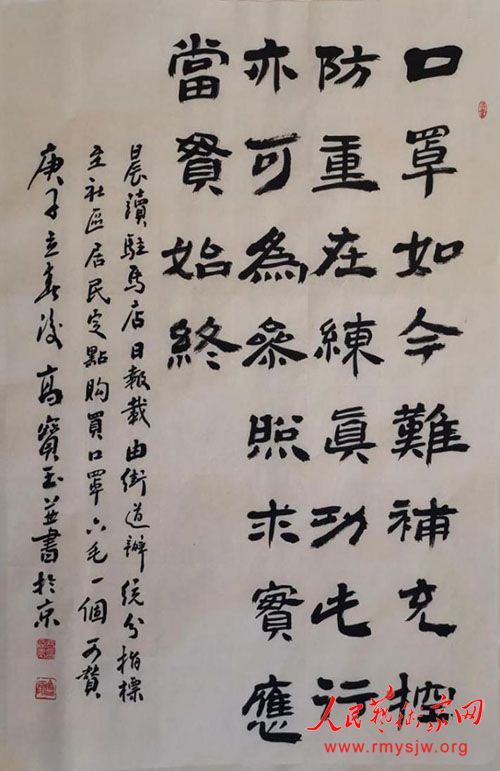 口罩如今難補充控
防重在練眞功屯行
亦可為參照求實應
當貫始終
晨讀駐馬店日報載由街道辦統分指標
至社區居民定點購買口罩六毛一個可贊
庚子立春後高寶玉並書於京
人民藝術家网
www.rmysjw.org